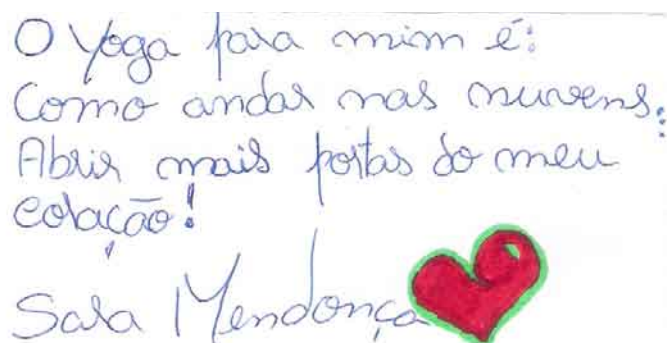 O Yoga para mim é:
Como andar nas nuvens;
Abrir mais portas do meu
coração!
Sara Mendonça